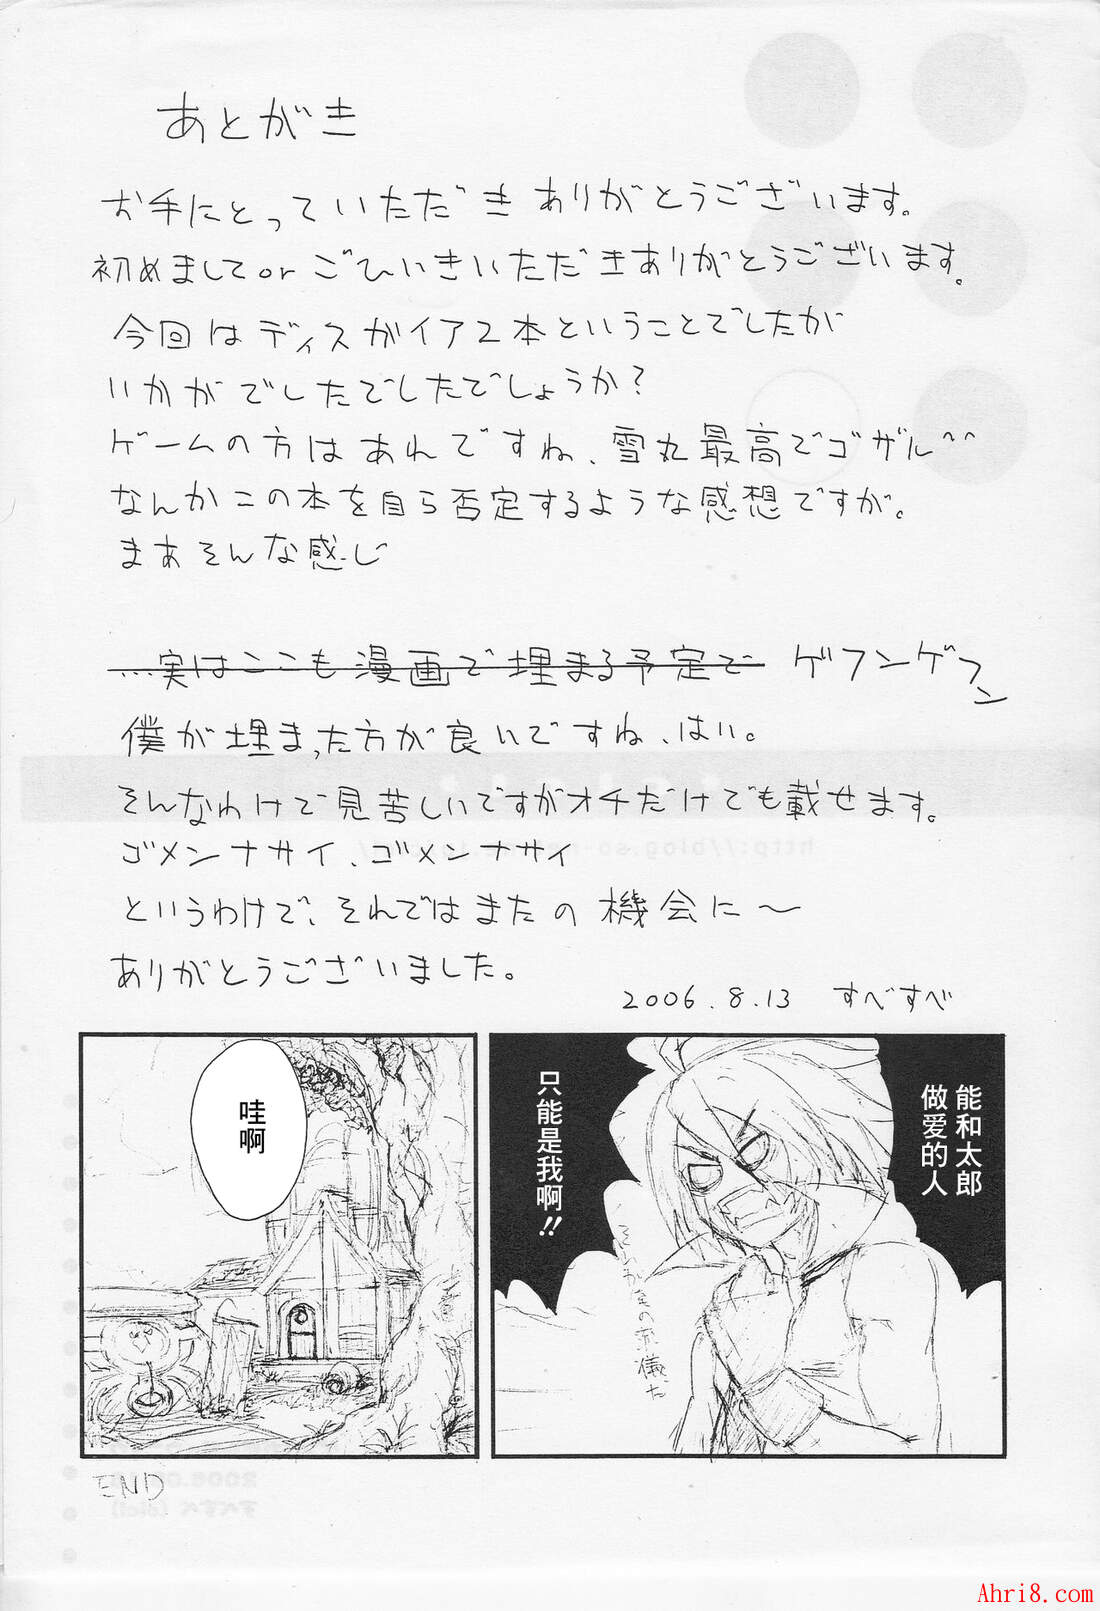 あとがき
お手にとっていただき ありがとうございます。
初めましてor ごひいきいただきありがとうございます。
今回はディスガイア2本ということでしたが
いかがでしたでしたでしょうか?
ゲームの方はあれですね、雪丸最高でゴザル^^
なんかこの本を自ら否定するような感想ですが。
まあそんな感じ
…実はここも漫画で埋まる予定で ゲフンゲフン
僕が埋まった方が良いですね、はい。
そんなわけで見苦しいですがオチだけでも載せます。
ゴメンナサイ、ゴメンナサイ
というわけで、それではまたの機会に〜
ありがとうございました。
2006.8.13 すべすべ
能和太郎
做爱的人
只能是我啊!!
哇啊
END
2006.0
すべすべ
Ahri8.com